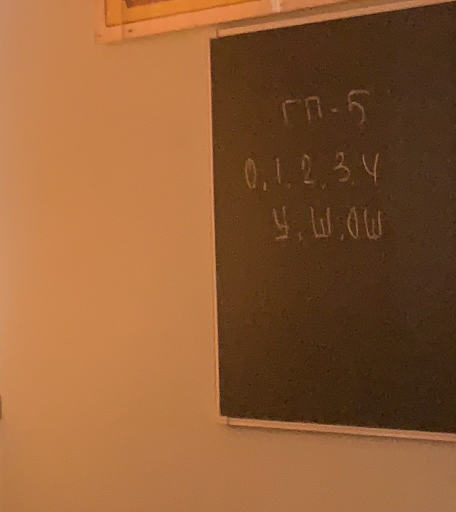 ГП-5
0, 1, 2, 3, 4
У, Ш, ОШ